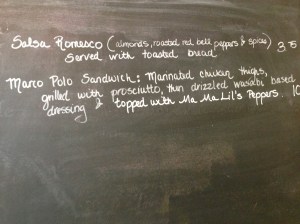 Salsa Romesco (almonds, roasted red bell peppers & spices) 35
Served with toasted bread
Marco Polo Sandwich: Marinated chicken thighs,
grilled with prosciutto, then drizzled wasabi based
dressing & topped with Ma Ma Lil's Peppers 10